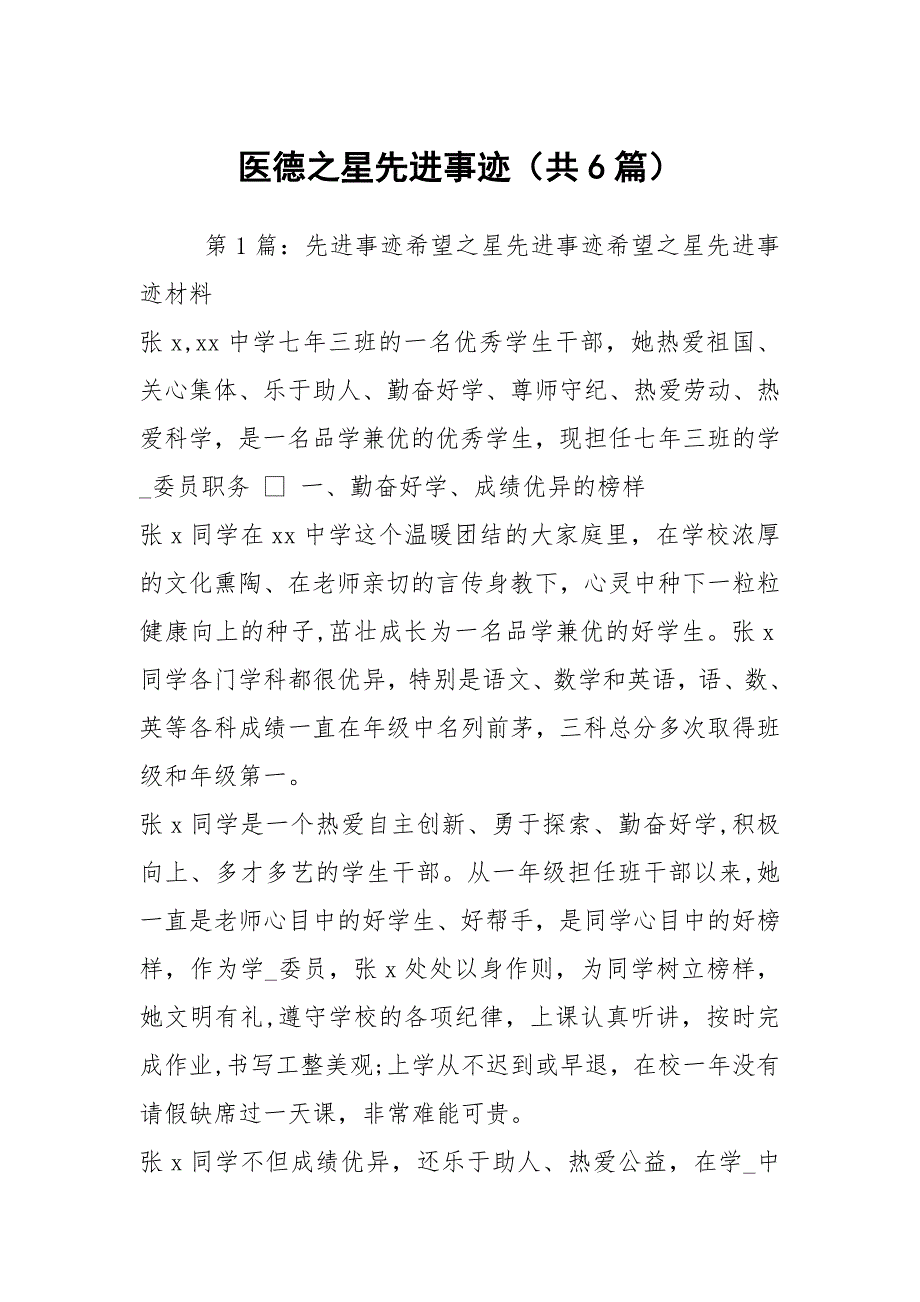 医德之星先进事迹（共6篇）
第1篇：先进事迹希望之星先进事迹希望之星先进事
迹材料
张x,xx中学七年三班的一名优秀学生干部，她热爱祖国、
关心集体、乐于助人、勤奋好学、尊师守纪、热爱劳动、热
爱科学，是一名品学兼优的优秀学生，现担任七年三班的学
_委员职务 □ 一、勤奋好学、成绩优异的榜样
张x同学在xx中学这个温暖团结的大家庭里，在学校浓厚
的文化熏陶、在老师亲切的言传身教下，心灵中种下一粒粒
健康向上的种子,茁壮成长为一名品学兼优的好学生。张x
同学各门学科都很优异，特别是语文、数学和英语，语、数、
英等各科成绩一直在年级中名列前茅，三科总分多次取得班
级和年级第一。
张x同学是一个热爱自主创新、勇于探索、勤奋好学,积极
向上、多才多艺的学生干部。从一年级担任班干部以来,她
一直是老师心目中的好学生、好帮手，是同学心目中的好榜
样，作为学_委员，张x处处以身作则，为同学树立榜样，
她文明有礼,遵守学校的各项纪律，上课认真听讲，按时完
成作业,书写工整美观;上学从不迟到或早退，在校一年没有
请假缺席过一天课，非常难能可贵。
张x同学不但成绩优异，还乐于助人、热爱公益，在学_中